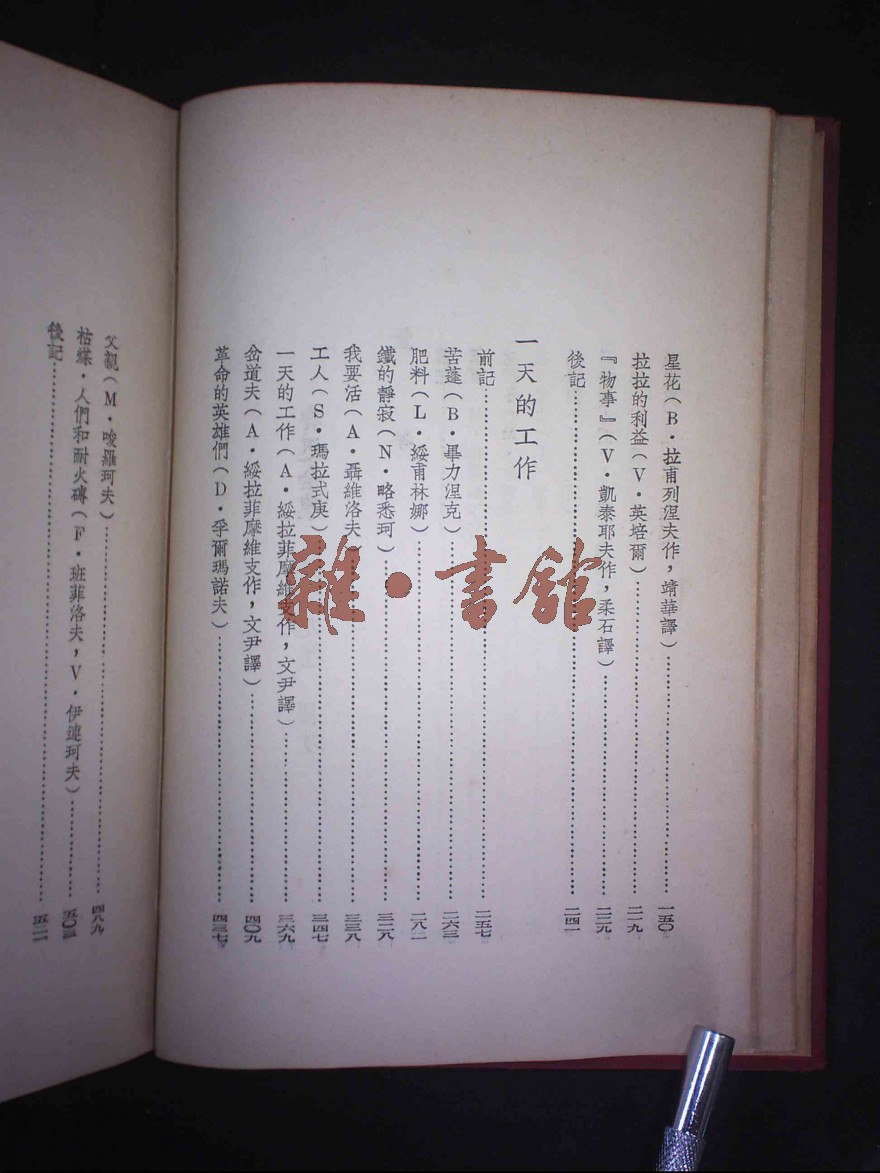 星花（B·拉甫列涅夫作，靖華譯）……一五〇
拉拉的利益（V·英培爾）……二一九
『物事』（V·凱泰耶夫作，柔石譯）……二二九
後記……二四一
一天的工作
前記……二五七
苦蓬（B·畢力涅克）……二六三
肥料（L·綏甫林娜）……二八一
鐵的靜寂（N·略悉珂）……三二八
我要活（A·聶維洛夫）……三三八
工人（S·瑪拉式庚）……三四七
一天的工作（A·綏拉菲摩維支作，文尹譯）……三六九
岔道夫（A·綏拉菲摩維支作，文尹譯）……四〇九
革命的英雄們（D·孚爾瑪諾夫）……四三七
父親（M·唆羅珂夫）……四八九
枯煤·人們和耐火磚（F·班菲洛夫，V·伊連珂夫）……五〇三
後記……五二一
雜·書館